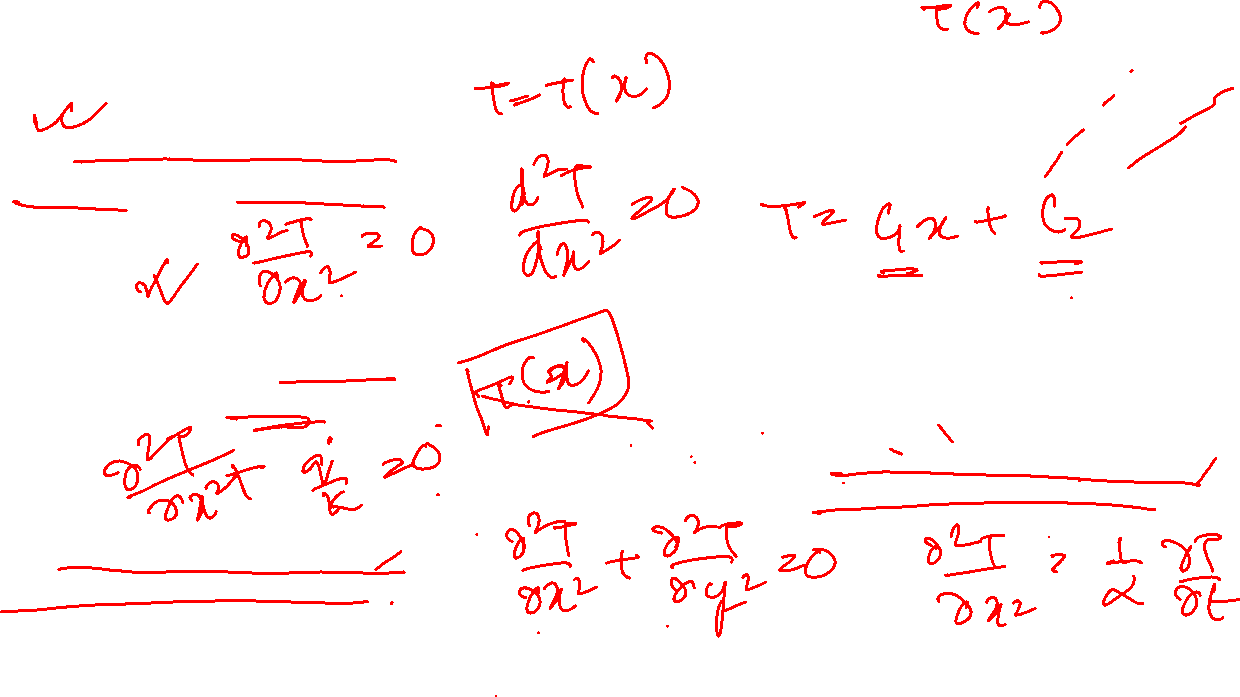 T(x)
T=T(x)
∂²T/∂x² = 0 d²T/dx² = 0 T = C₁x + C₂
T(x)
∂²T/∂x² + q̇/k = 0
∂²T/∂x² + ∂²T/∂y² = 0 ∂²T/∂x² = 1/α ∂T/∂t